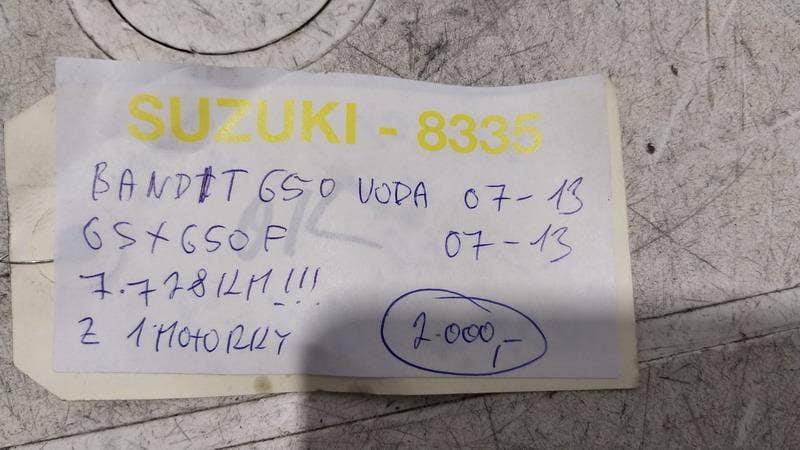 SUZUKI - 8335
BANDIT 650 VODA 07-13
GSX650F 07-13
7.728KM!!!
Z 1 MOTORKY
2.000,-